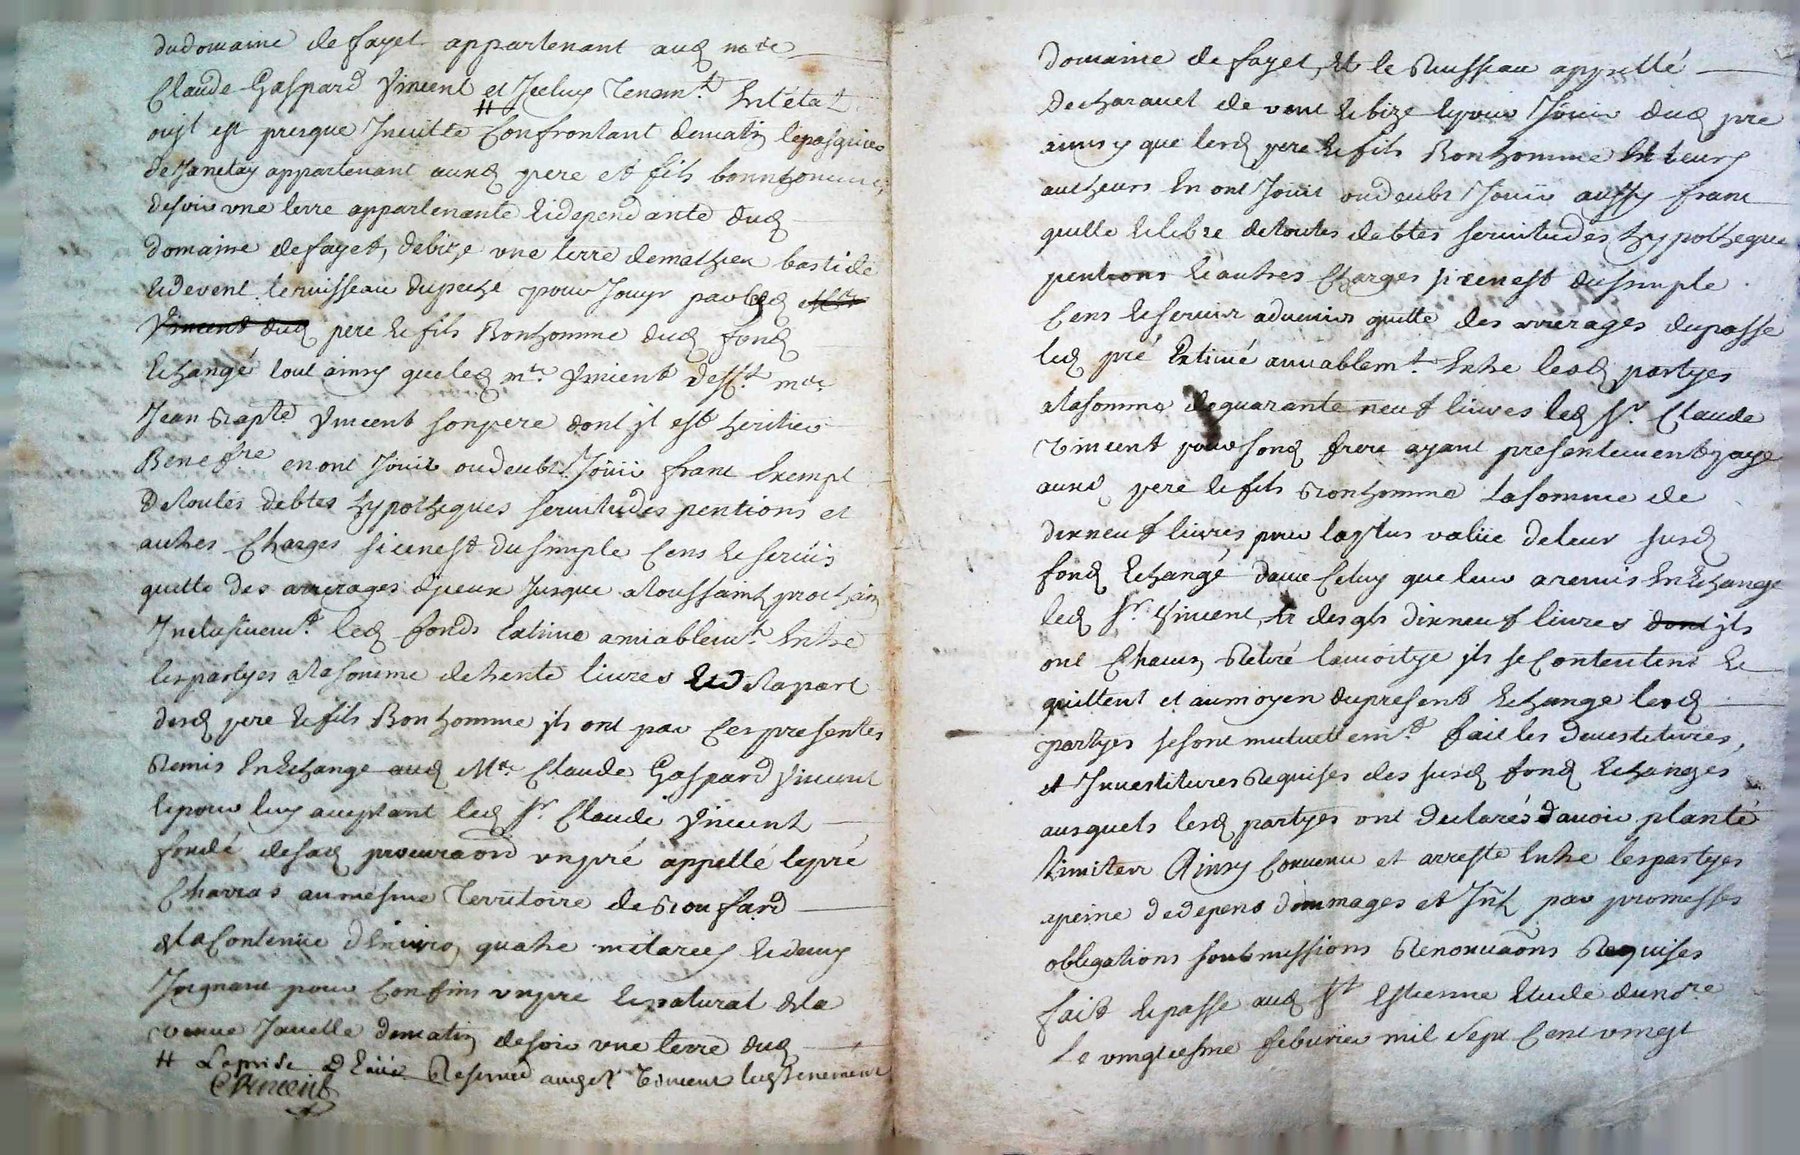 dudomaine de fayet appartenant aud mre
Claude Gaspard Vincent et Jceluy Tenemt. En l'état
oujl est presque Jnculte Confrontant dematin lepasquier
de Janetay appartenant auxd pere et fils bonnhomme,
desoir une terre appartenante Eidependante dud
domaine defayet, debize une terre demathieu bastide
Eidevent leruisseau dupuche pour Jouyr parlesd
Vincent dud pere Et fils Bonhomme dud fond
Echangé tout ainsy queled mre. Vincent Defft. mre
Jean Bapte Vincent sonpere dont jl est heritier
Benefre en ont Joüit oudeubt Joüir franc Exempt
detoutes debtes hypotheques servitudes pentions et
autres Charges si cenest dusimple Cens Et servis
quitte des arrerages djceux Jusque atoussaint prochain
Jnclusivemt. led fonds Estimé amiablemt. Entre
lespartyes alasomme detrente livres Et dela part
desd pere Et fils Bonhomme jls ont par Cespresentes
Remis En Echange aud Mre. Claude Gaspard Vincent
Et pour luy aceptant led sr. Claude Vincent
fondé desad procuraon unpré appellé lepré
Charras aumesme Territoire de Roufard
dela Contenüe d'Environ quatre metarees Et demy
Joignant pour Confins unpré Et naturat dela
venue Javelle dematin desoir une terre dud
# Laprise d'Eaüe Reservée audsr. Vincent tenement
CVincent
domaine de fayet, Et le Ruisseau appellé
decharavel de vent Et bize Et pour Joüir dud pré
ainsy que lesd pere Et fils Bonhomme Et leurs
autheurs En ont Joüit oudeubt Joüir aussy franc
quitte Et libre detoutes debtes servitudes hypotheques
pentions Et autres Charges si cenest dusimple
Cens Et servis advenir quitte des arrerages dupassé
led pré Estimé amiablemt. Entre lesd partyes
alasomme dequarante neuf livres led sr. Claude
Vincent pour sond frere ayant presentement payé
auxd pere Et fils Bonhomme lasomme de
dixneuf livres pour laplus valüe deleur susd
fond Echangé davec Celuy que leur aremis En Echange
led sr. Vincent, Et desqls dixneuf livres dont jls
ont Chacun Retiré lamoitye jls se Contentent Et
quittent et aumoyen dupresent Echange lesd
partyes sesont mutuellemt. fait les devestitures,
et Jnvestitures Requises des susd fond Echangés
ausquels lesd partyes ont declarés d'avoir planté
limites Ainsy Convenu et arresté Entre lespartyes
apeine dedepens dommages et Jnt. par promesses
obligations soubmissions Renonciaons Requises
fait Et passé aud St Estienne Etude dunore
le vingtiesme febvrier mil sept Cent vingt